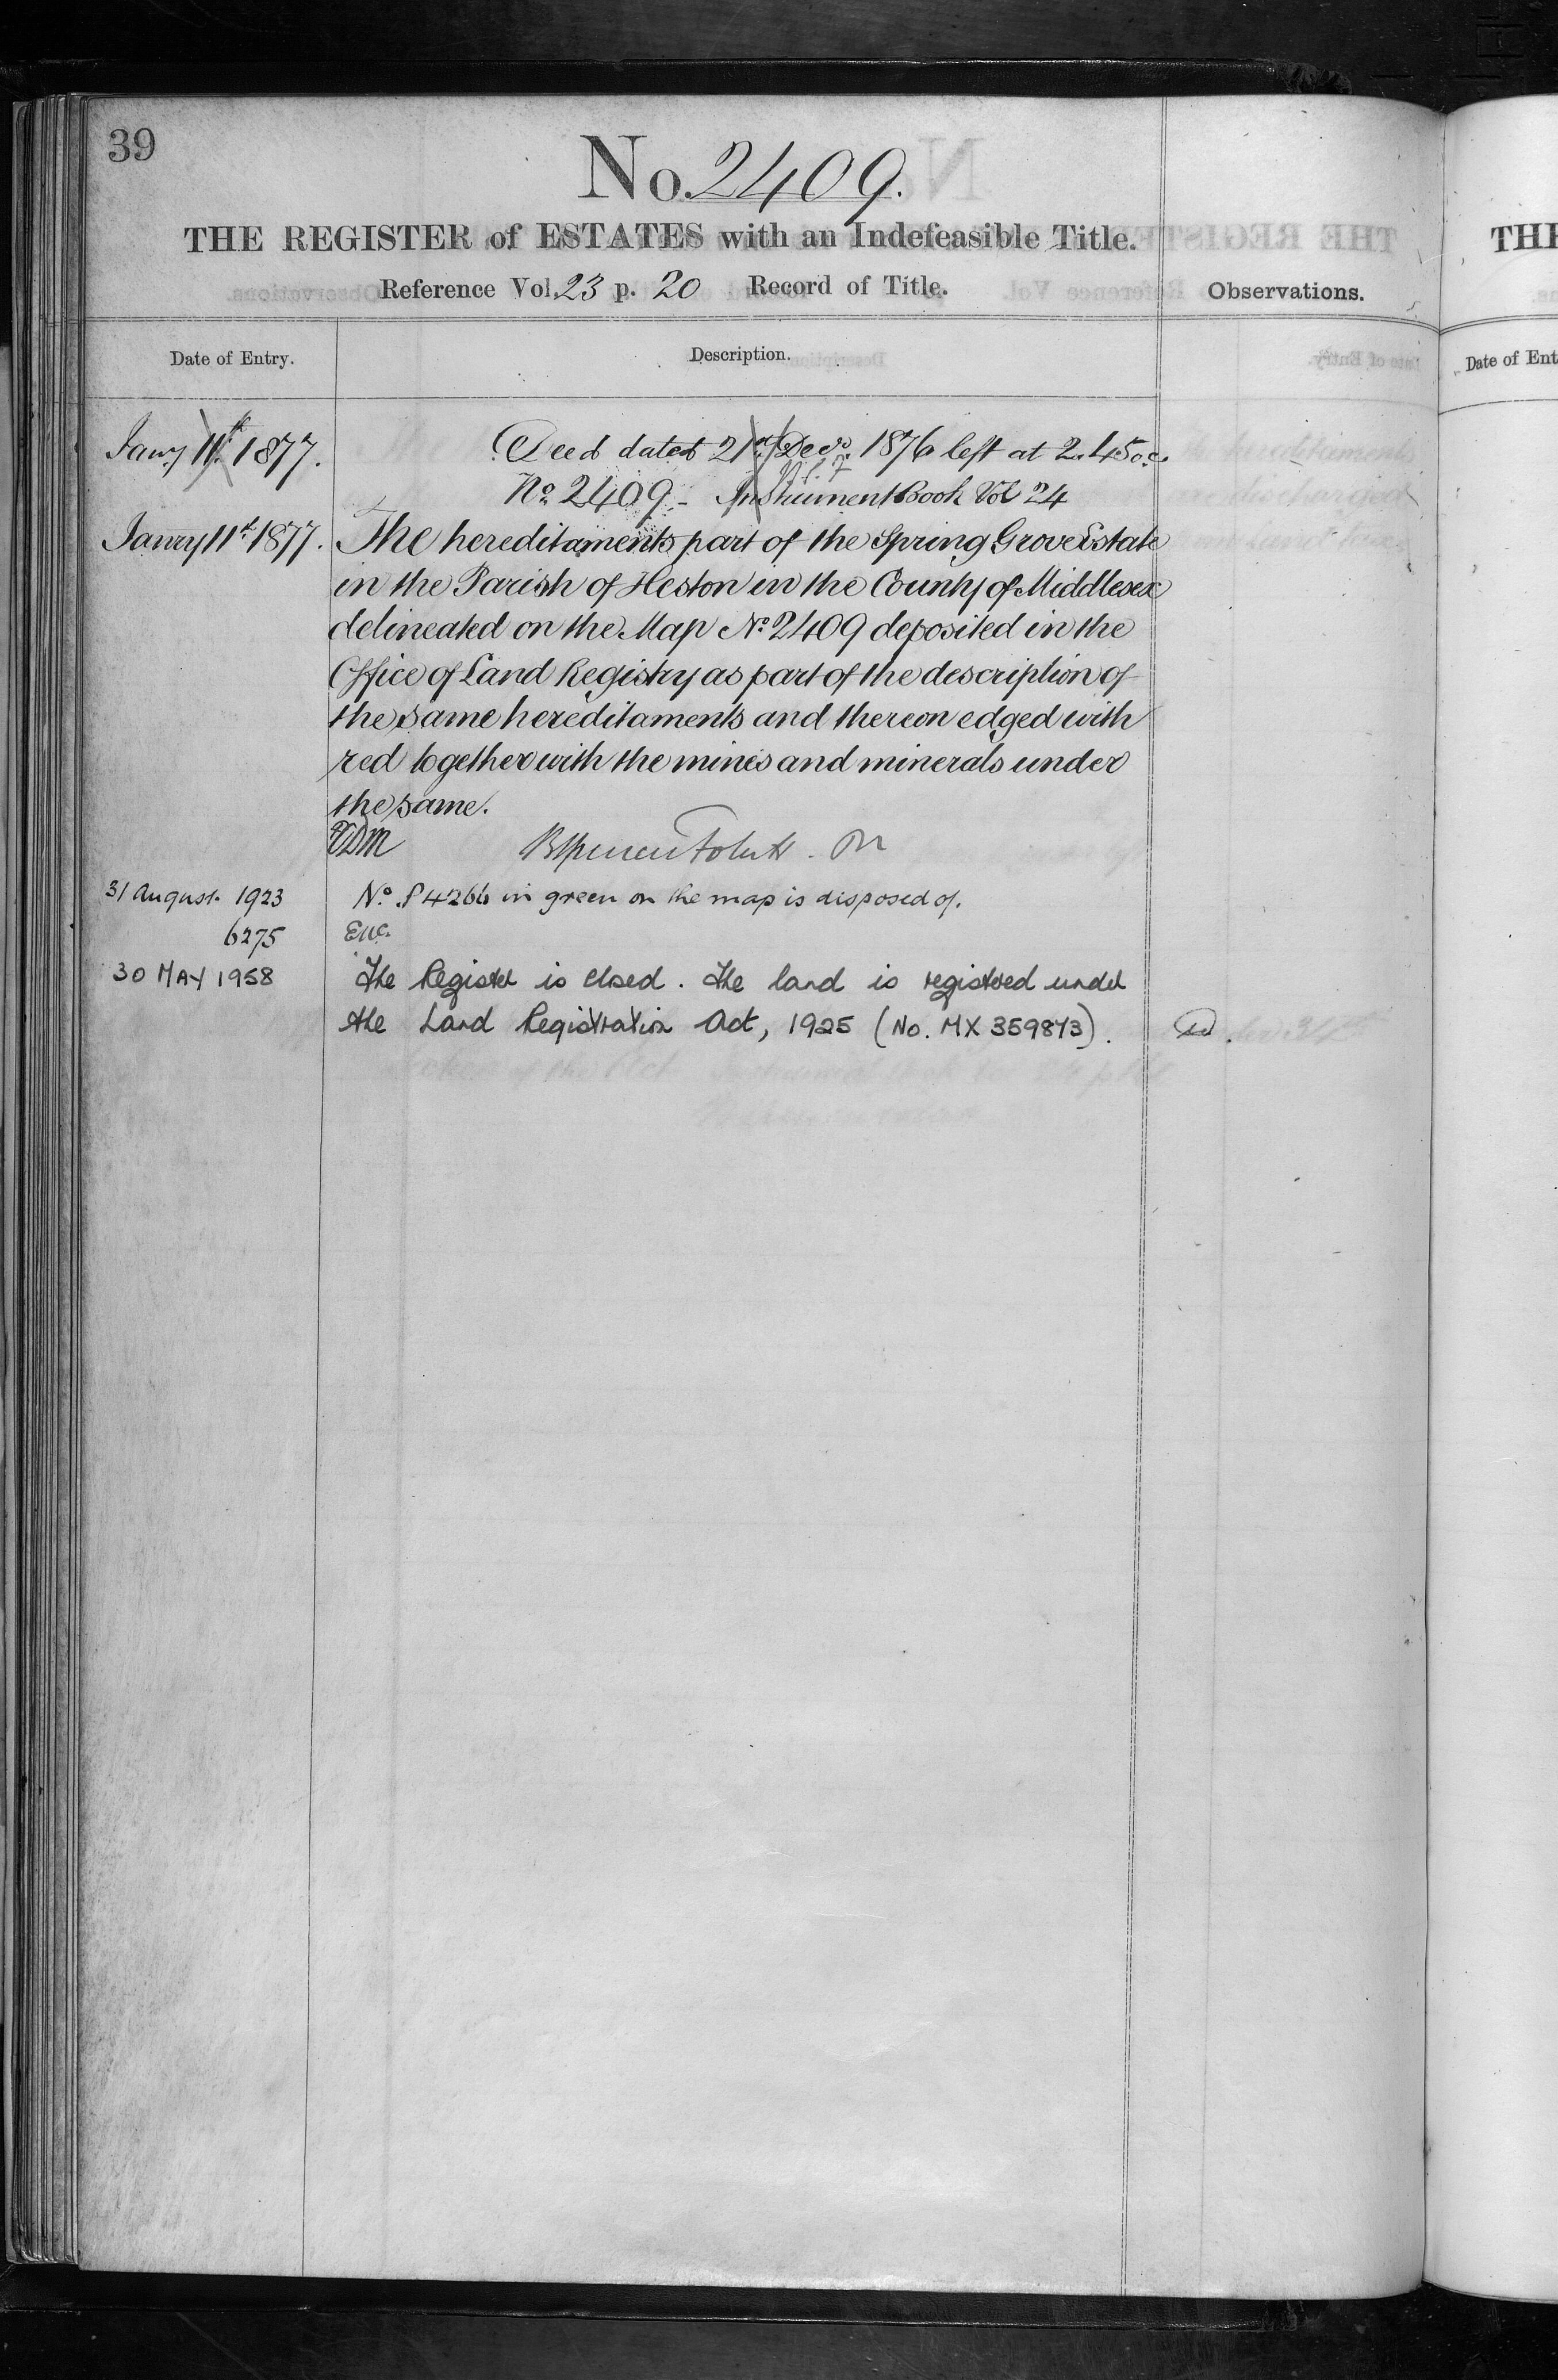 39
No. 2409.
THE REGISTER of ESTATES with an Indefeasible Title.
Reference Vol. 23 p. 20 Record of Title.
Observations.
Date of Entry.
Description.
Jany 11th 1877.
Deed dated 21st Decr. 1876 left at 2.45 oc.
No. 2409 - Instrument Book Vol 24
Janry 11th 1877.
The hereditaments part of the Spring Grove Estate
in the Parish of Heston in the County of Middlesex
delineated on the Map No. 2409 deposited in the
Office of Land Registry as part of the description of
the same hereditaments and thereon edged with
red together with the mines and minerals under
the same.
31 August 1923
No. P4266 in green on the map is disposed of.
6275
30 MAY 1958
The Register is closed. The land is registered under
the Land Registration Act, 1925 (No. MX 359873).
THE
Date of Ent